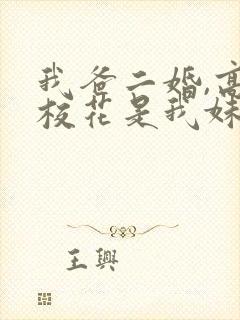 我爸二婚,高
校花是我妹
王興